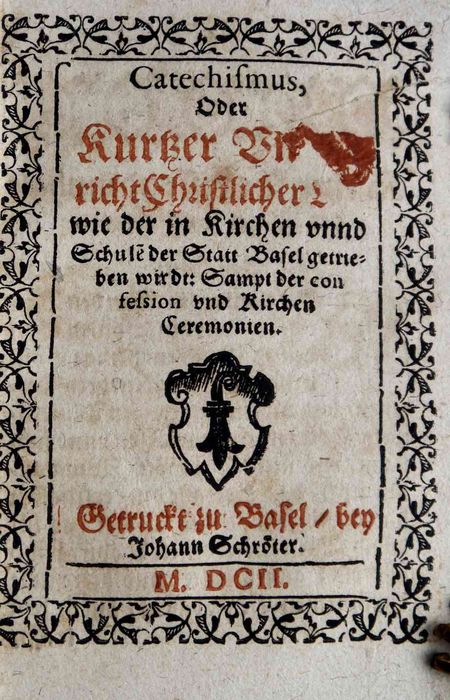 Catechiſmus,
Oder
Kurtzer Vn
richt Chriſtlicher
wie der in Kirchen vnnd
Schulẽ der Statt Baſel getrie⸗
ben wirdt: Sampt der con
feſſion vnd Kirchen
Ceremonien.
Getruckt zu Baſel / bey
Johann Schröter.
M. DCII.